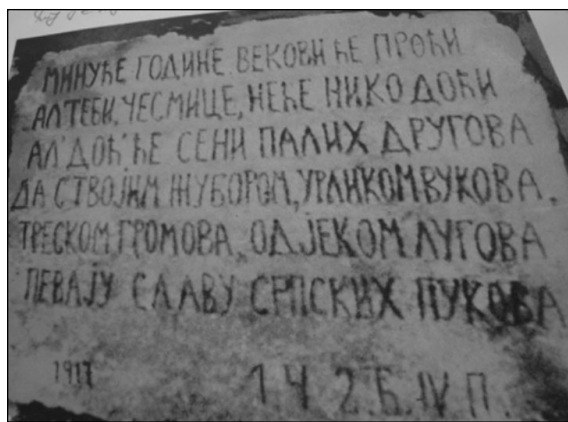 МИНУЋЕ ГОДИНЕ ВЕКОВИ ЋЕ ПРОЋИ
АЛ ТЕБИ, ЧЕСМИЦЕ, НЕЋЕ НИКО ДОЋИ
АЛ' ДОЋ' ЋЕ СЕНИ ПАЛИХ ДРУГОВА
ДА СТВОЈИМ ЖУБОРОМ, УРЛИКОМ ВУКОВА,
ТРЕСКОМ ГРОМОВА, ОДЈЕКОМ ЛУГОВА
ПЕВАЈУ СЛАВУ СРПСКИХ ПУКОВА
1917 1. Ч 2. Б. IV П.